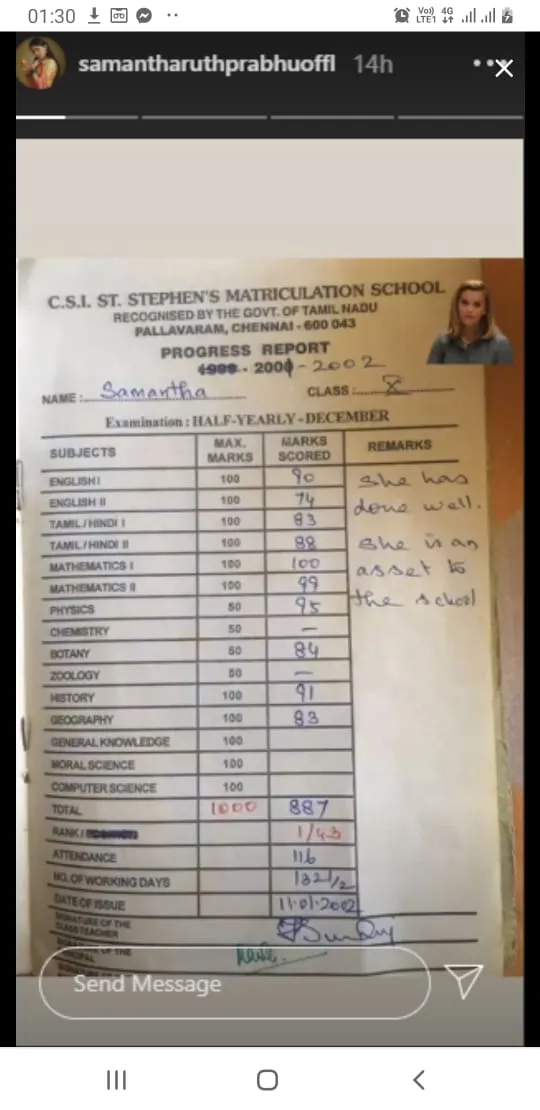 01:30 Vo)) 4G
LTE1
samantharuthprabhuoffl 14h
C.S.I. ST. STEPHEN'S MATRICULATION SCHOOL
RECOGNISED BY THE GOVT. OF TAMIL NADU
PALLAVARAM, CHENNAI - 600 043
PROGRESS REPORT
1999 - 2001 - 2002
NAME : Samantha CLASS : X
Examination : HALF-YEARLY - DECEMBER
SUBJECTS MAX. MARKS MARKS SCORED REMARKS
ENGLISH I 100 90 She has
ENGLISH II 100 74 done well.
TAMIL / HINDI I 100 83
TAMIL / HINDI II 100 88 She is an
MATHEMATICS I 100 100 asset to
MATHEMATICS II 100 99 the school
PHYSICS 50 95
CHEMISTRY 50 —
BOTANY 50 84
ZOOLOGY 50 —
HISTORY 100 91
GEOGRAPHY 100 83
GENERAL KNOWLEDGE 100
MORAL SCIENCE 100
COMPUTER SCIENCE 100
TOTAL 1000 887
RANK / 1/43
ATTENDANCE 116
NO. OF WORKING DAYS 132 1/2
DATE OF ISSUE 11.01.2002
SIGNATURE OF THE
CLASS TEACHER
SIGNATURE OF THE
Send Message